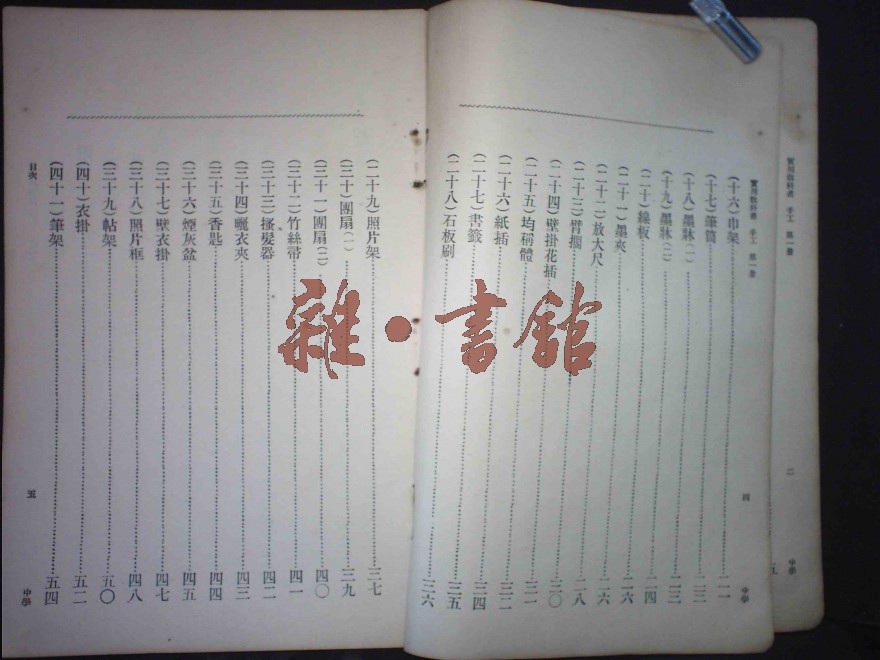 實用教科書 手工 第一册
二
中學
五
實用教科書 手工 第一册
四
中學
(十六)巾架……二一
(十七)筆筒……二二
(十八)墨牀(一)……二三
(十九)墨牀(二)……二三
(二十)線板……二四
(二十一)墨夾……二六
(二十二)放大尺……二六
(二十三)臂擱……二八
(二十四)壁掛花插……三〇
(二十五)均稱體……三一
(二十六)紙插……三二
(二十七)書籤……三四
(二十八)石板刷……三五
三六
(二十九)照片架……三七
(三十)團扇(一)……三九
(三十一)團扇(二)……四〇
(三十二)竹絲帚……四一
(三十三)搔髮器……四二
(三十四)曬衣夾……四三
(三十五)香匙……四四
(三十六)煙灰盆……四五
(三十七)壁衣掛……四七
(三十八)照片框……四八
(三十九)帖架……五〇
(四十)衣掛……五二
(四十一)筆架……五四
目次
五
中學
雜·書館